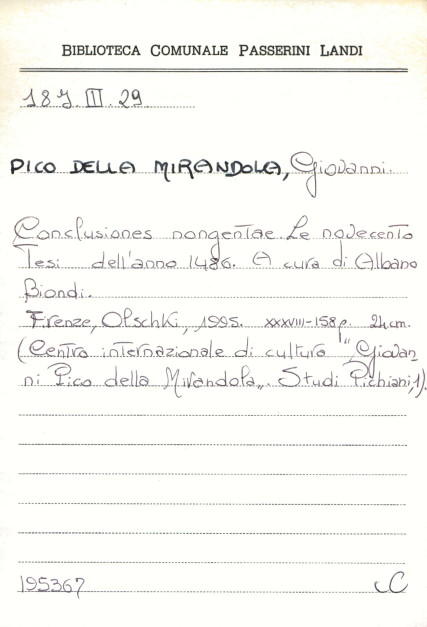 BIBLIOTECA COMUNALE PASSERINI LANDI
187. III. 29
PICO DELLA MIRANDOLA, Giovanni.
Conclusiones nongentae. Le novecento
Tesi dell'anno 1486. A cura di Albano
Biondi.
Firenze, Olschki, 1995. XXXVIII-158 p. 24cm.
(Centro internazionale di cultura "Giovan
ni Pico della Mirandola„. Studi Pichiani,1).
195367 C